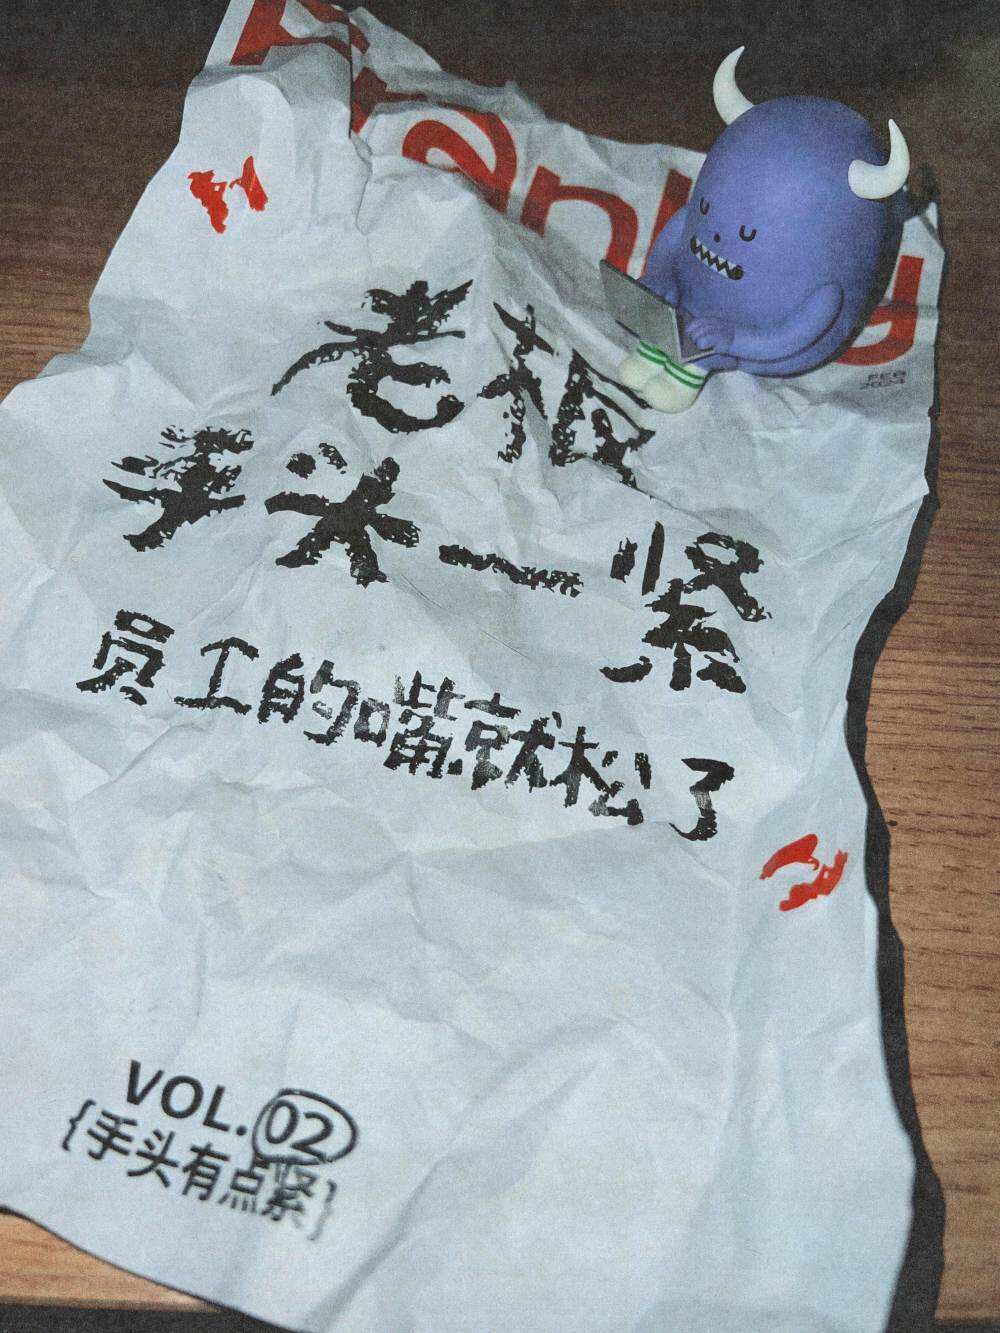 FEB
2024
老板
手头一紧
员工的嘴就松了
VOL.02
{手头有点紧}